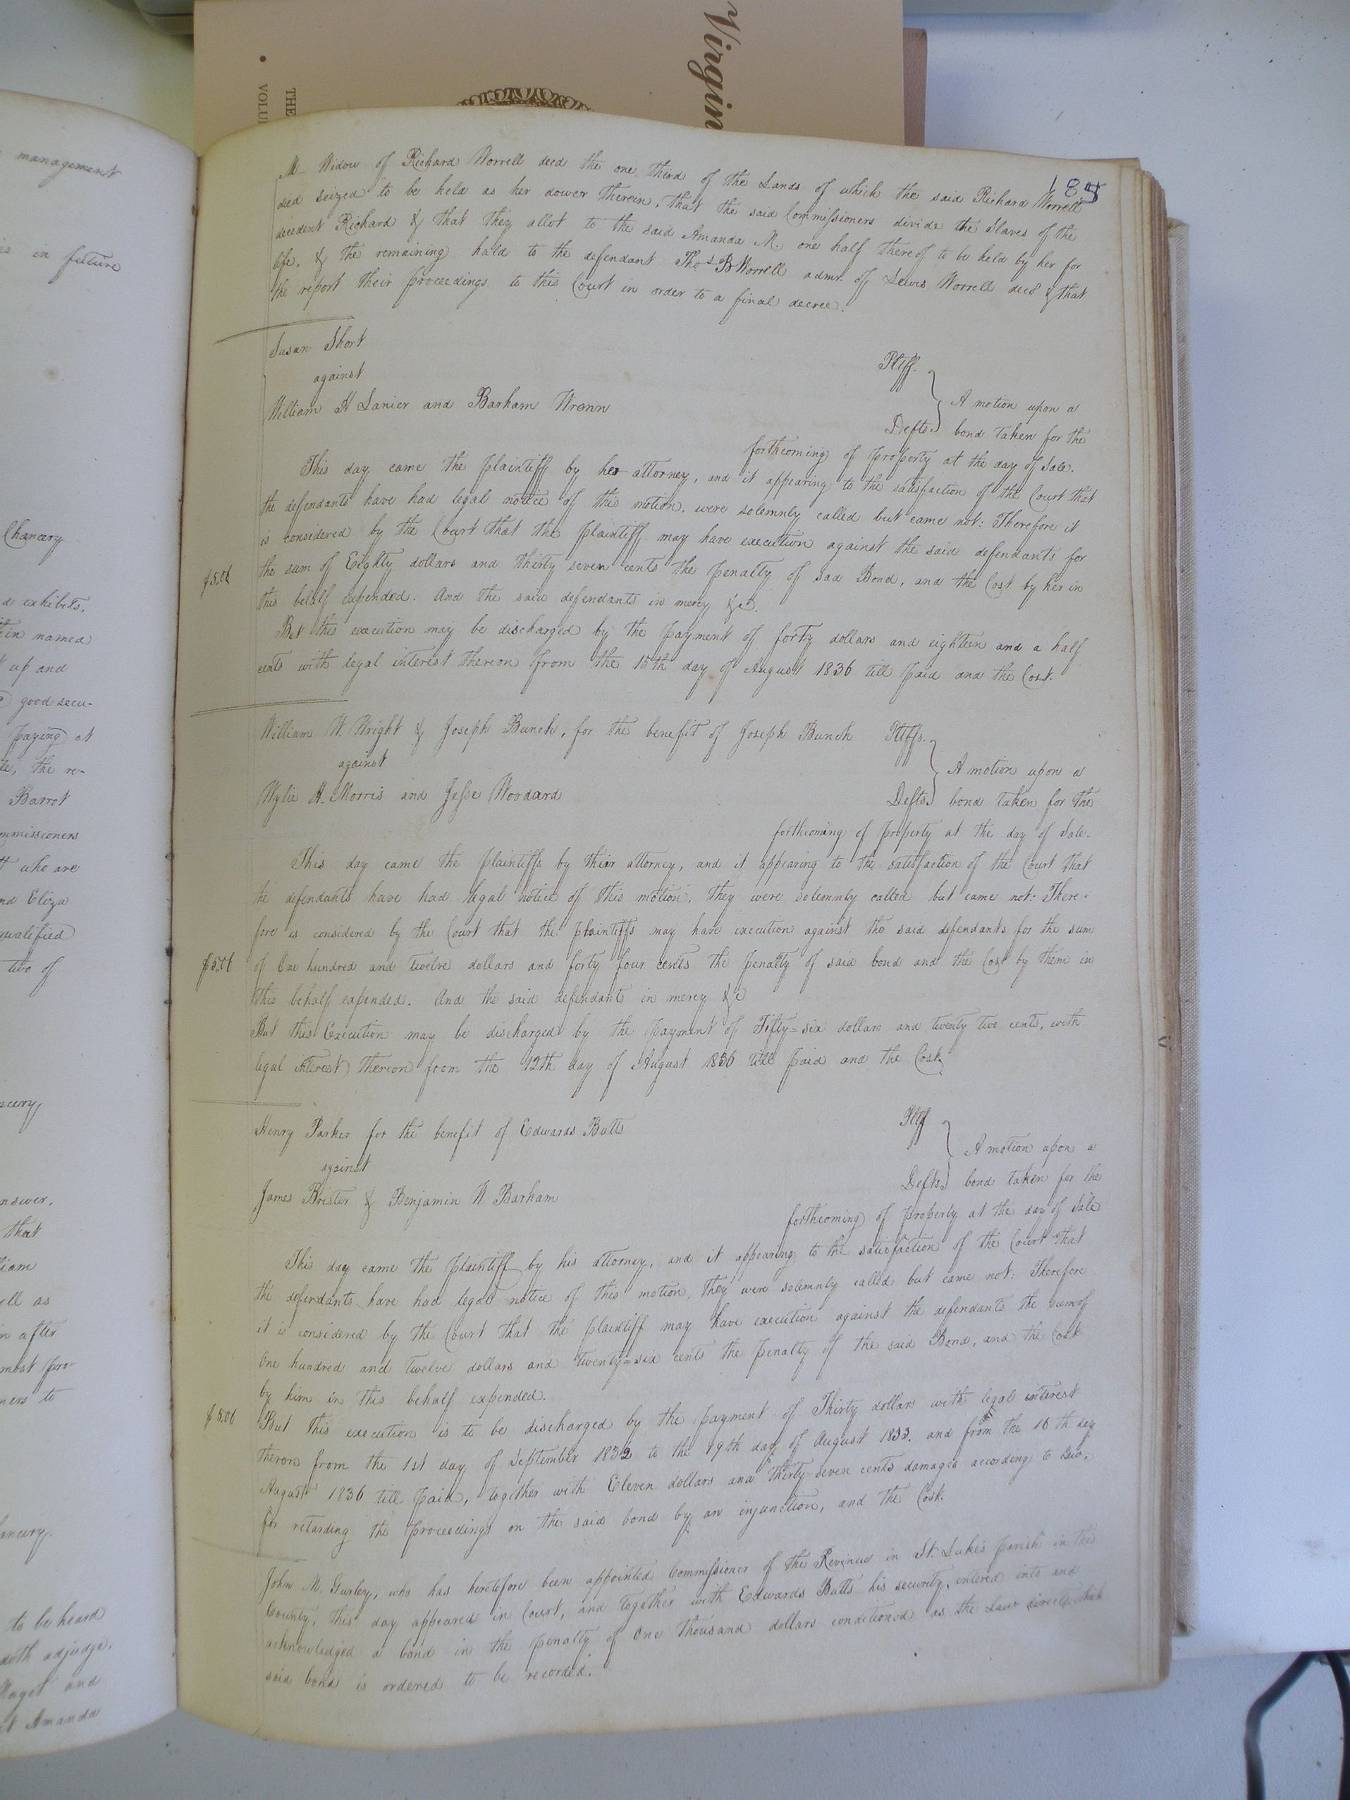 Virgin
THE
VOLU
management
is in future
Chancery
exhibits,
named
up and
good secu-
paying at
the re-
Barrot
mmissioners
who are
nd Eliza
qualified
two of
ncery
nswer,
that
liam
ell as
n after
most pro-
ners to
hancery.
to be heard
doth adjudge,
and
Amanda
185
M. Widow of Richard Worrell decd the one third of the Lands of which the said Richard Worrell
died seized to be held as her dower therein, that the said Commissioners divide the Slaves of the
decedent Richard & that they allot to the said Amanda M. one half thereof to be held by her for
life, & the remaining hald to the defendant Thos. B Worrell admr. of Lewis Worrell decd & that
the report their proceedings to this Court in order to a final decree.
Susan Short Pltff.
against
William H Lanier and Barham Wrenn Defts.
A motion upon a
bond taken for the
forthcoming of property at the day of Sale.
This day came the plaintiff by her attorney, and it appearing to the satisfaction of the Court that
the defendants have had legal notice of this motion. were solemnly called but came not: Therefore it
is considered by the Court that the plaintiff may have execution against the said defendants for
the sum of Eighty dollars and thirty seven cents the penalty of said Bond, and the Cost by her in
$5.06
this behalf expended. And the said defendants in mercy &c.
But this execution may be discharged by the payment of forty dollars and eighteen and a half
cents with legal interest thereon from the 15th day of August 1836 till paid and the Cost.
William W. Wright & Joseph Bunch, for the benefit of Joseph Bunch Pltffs.
against
Wylie H. Morris and Jesse Woodard Defts.
A motion upon a
bond taken for the
forthcoming of property at the day of Sale.
This day came the plaintiffs by their attorney, and it appearing to the satisfaction of the Court that
the defendants have had legal notice of this motion, they were solemnly called but came not: There-
fore is considered by the Court that the plaintiffs may have execution against the said defendants for the sum
$5.01
of One hundred and twelve dollars and forty four cents the penalty of said bond and the Cost by them in
this behalf expended. And the said defendants in mercy &c
But this Execution may be discharged by the payment of Fifty=six dollars and twenty two cents, with
legal interest thereon from the 12th day of August 1836 till paid and the Cost.
Henry Parker for the benefit of Edwards Butts Pltf
against
James Brister & Benjamin W Barham Defts.
A motion upon a
bond taken for the
forthcoming of property at the day of Sale
This day came the plaintiff by his attorney, and it appearing to the satisfaction of the Court that
the defendants have had legal notice of this motion, they were solemnly called but came not: Therefore
it is considered by the Court that the plaintiff may have execution against the defendants the sum of
One hundred and twelve dollars and twenty=six cents the penalty of the said Bond, and the Cost
by him in this behalf expended.
$5.06
But this execution is to be discharged by the payment of Thirty dollars with legal interest
theron from the 1st day of September 1832 to the 19th day of August 1833. and from the 16th day
August 1836 till paid, together with Eleven dollars and thirty seven cents damages according to Law,
for retarding the proceedings on the said bond by an injunction, and the Cost.
John M. Gurley, who has heretofore been appointed Commissioner of the Revenue in St. Lukes parish in this
County, this day appeared in Court, and together with Edwards Butts his security, entered into and
acknowledged a bond in the penalty of One thousand dollars conditioned as the Law directs which
said bond is ordered to be recorded.